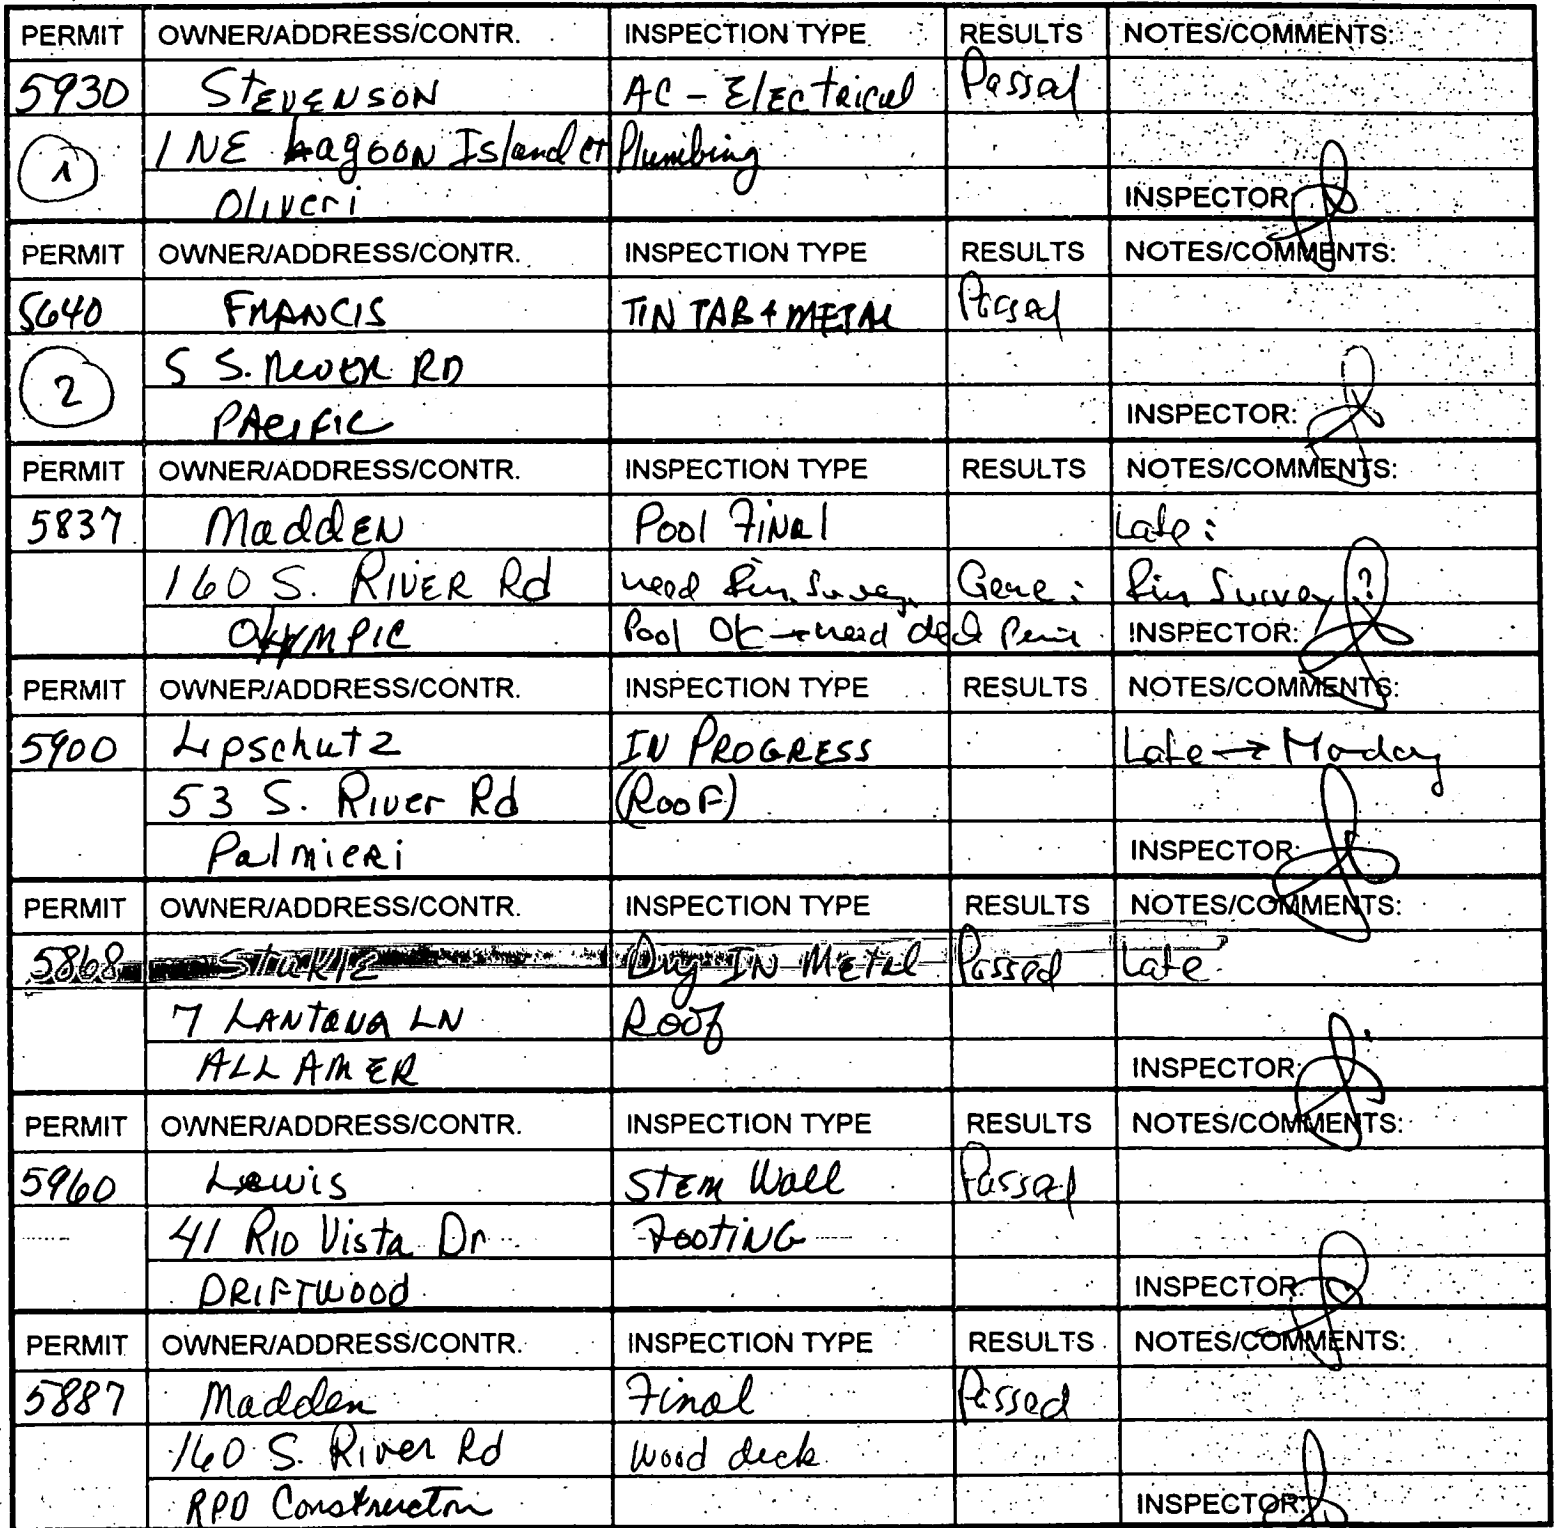 PERMIT OWNER/ADDRESS/CONTR. INSPECTION TYPE RESULTS NOTES/COMMENTS:
5930 STEVENSON AC - Electrical Passed
1 1 NE Lagoon Island Ct Plumbing
Oliveri INSPECTOR:
PERMIT OWNER/ADDRESS/CONTR. INSPECTION TYPE RESULTS NOTES/COMMENTS:
5640 FRANCIS TIN TAB + METAL Passed
2 5 S. RIVER RD
PACIFIC INSPECTOR:
PERMIT OWNER/ADDRESS/CONTR. INSPECTION TYPE RESULTS NOTES/COMMENTS:
5837 Madden Pool Final Late:
160 S. RIVER Rd need Survey Gene: Survey?
OLYMPIC Pool OK → need deck INSPECTOR:
PERMIT OWNER/ADDRESS/CONTR. INSPECTION TYPE RESULTS NOTES/COMMENTS:
5900 Lipschutz IN PROGRESS Late → Monday
53 S. River Rd (ROOF)
Palmieri INSPECTOR:
PERMIT OWNER/ADDRESS/CONTR. INSPECTION TYPE RESULTS NOTES/COMMENTS:
5868 Dry IN Metal Passed Late
7 LANTANA LN Roof
ALL AMER INSPECTOR:
PERMIT OWNER/ADDRESS/CONTR. INSPECTION TYPE RESULTS NOTES/COMMENTS:
5960 Lewis STEM Wall Passed
41 RIO Vista Dr Footing
DRIFTWOOD INSPECTOR:
PERMIT OWNER/ADDRESS/CONTR. INSPECTION TYPE RESULTS NOTES/COMMENTS:
5887 Madden Final Passed
160 S. River Rd Wood deck
RPD Construction INSPECTOR: